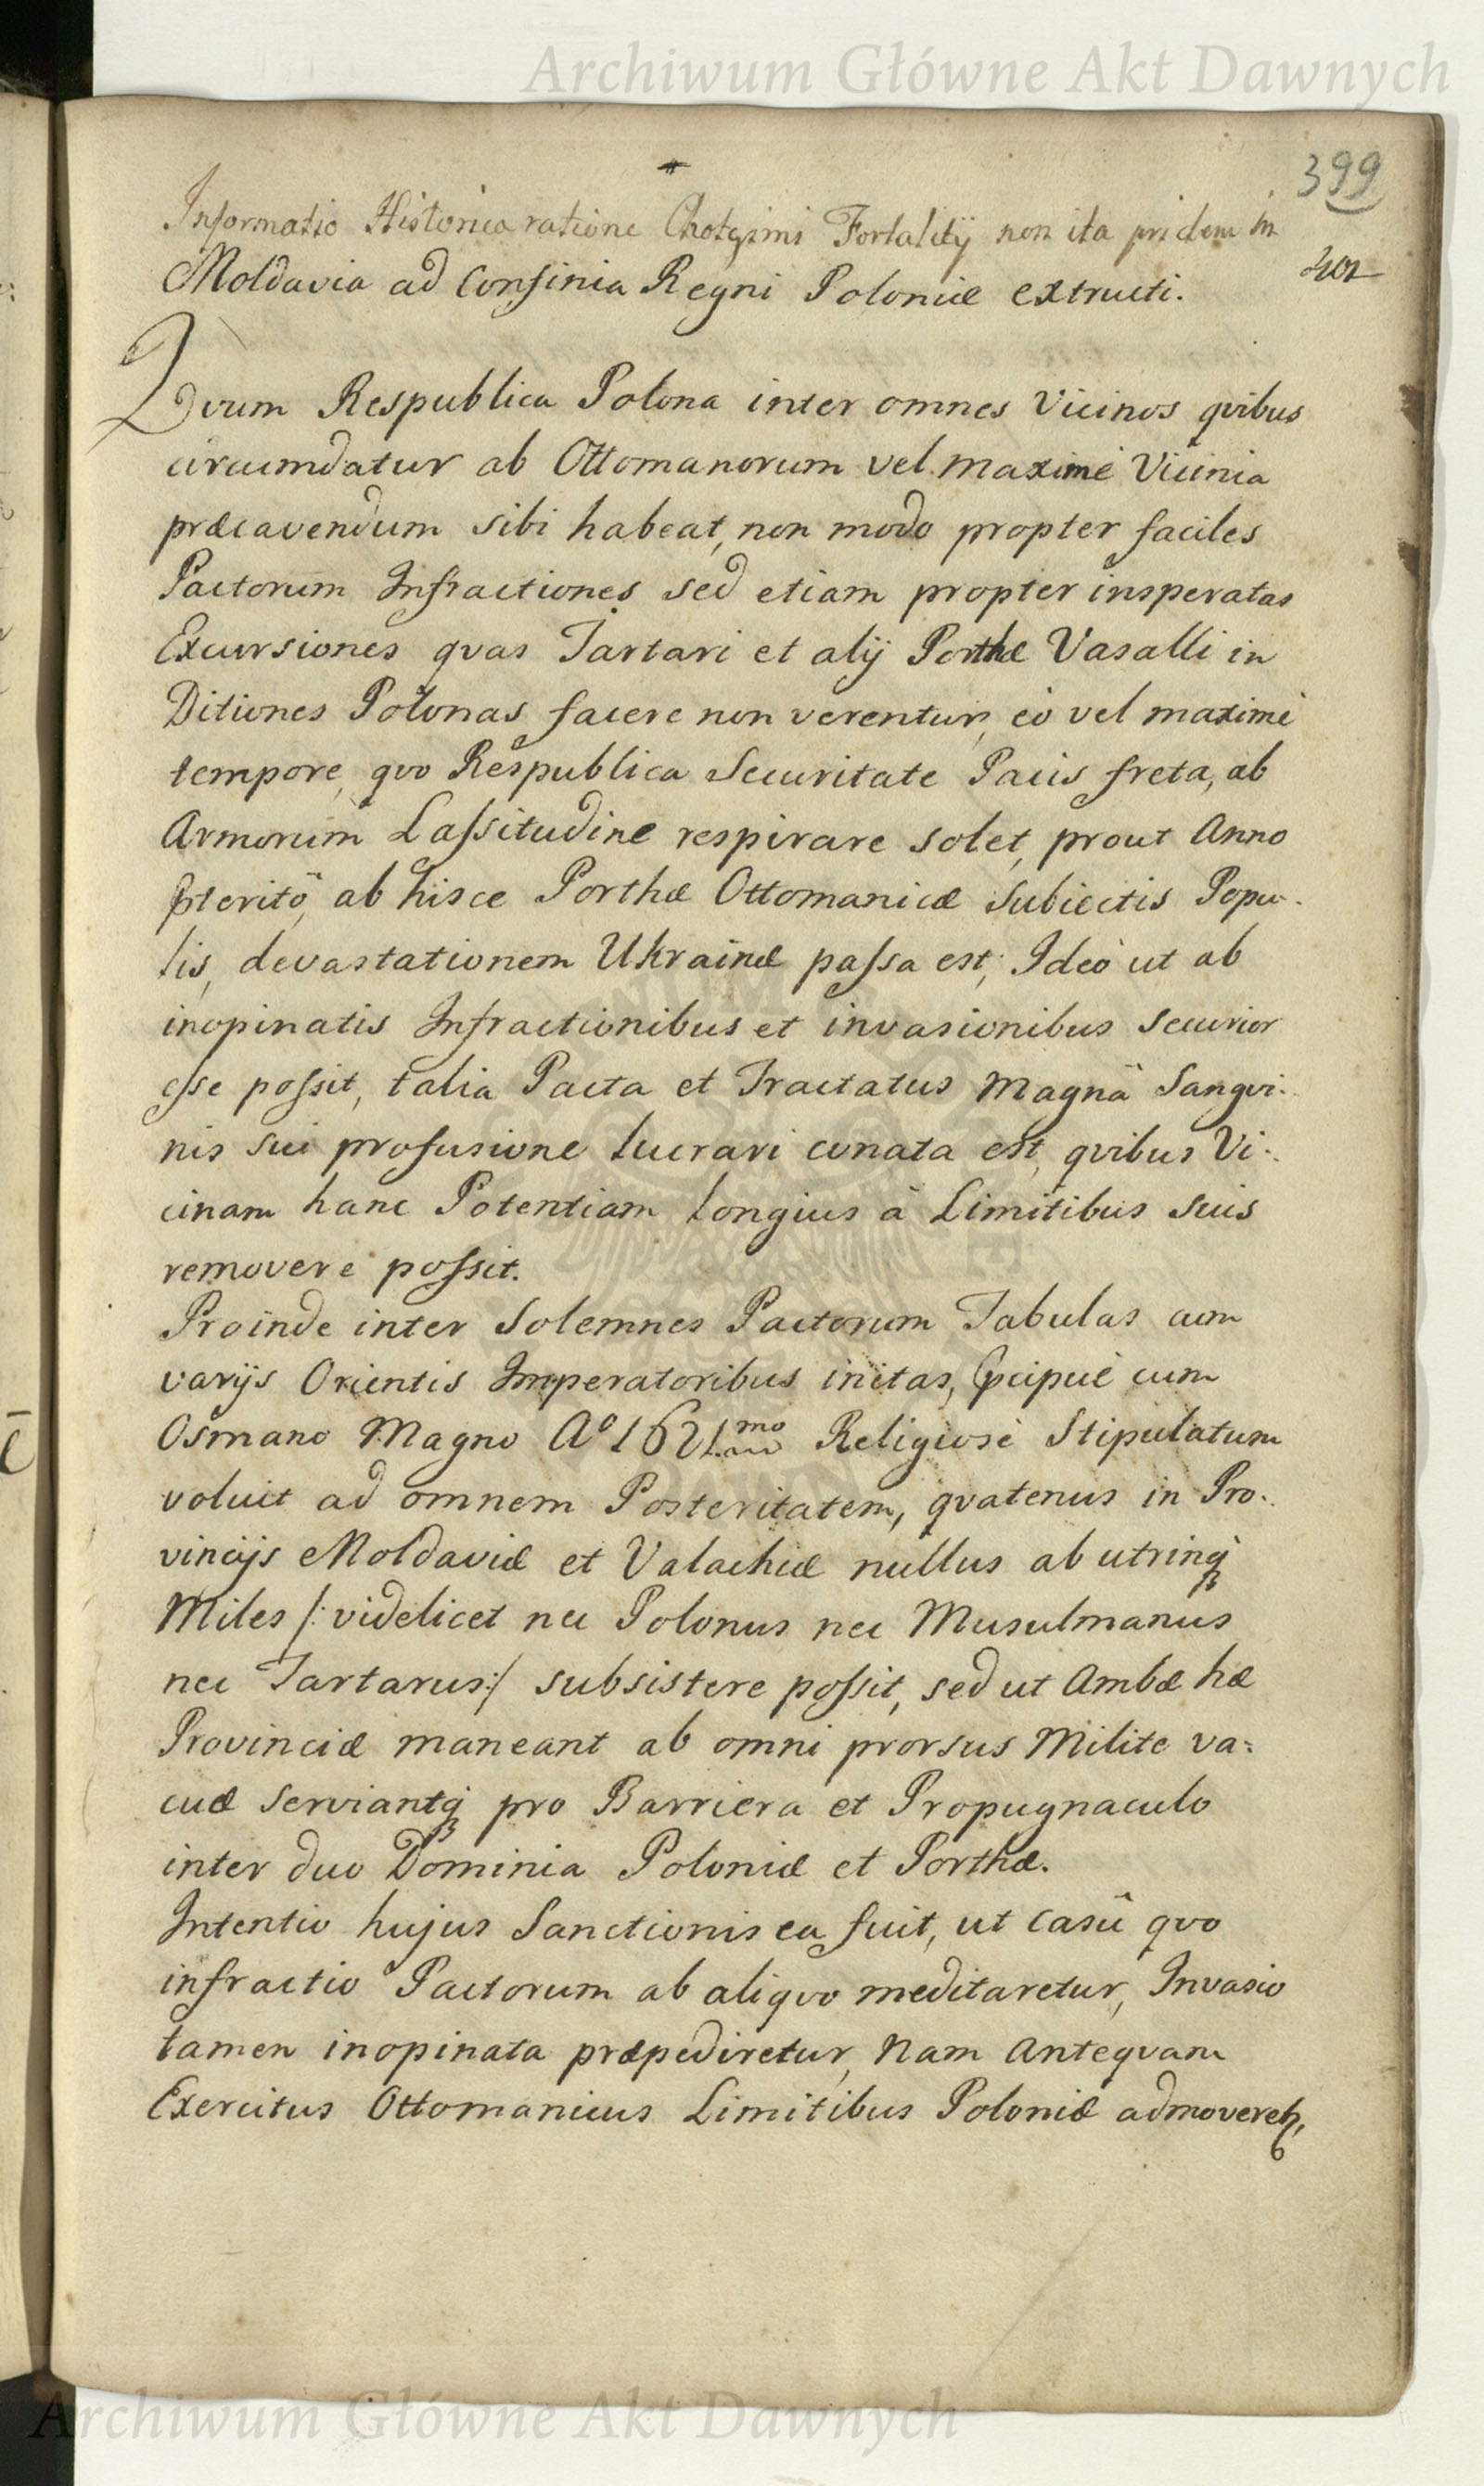 Archiwum Główne Akt Dawnych
399
Informatio Historica ratione Chotzimi Fortalitij non ita pridem in
Moldavia ad Confinia Regni Poloniæ extructi.
201
Qvum Respublica Polona inter omnes Vicinos qvibus
circumdatur ab Ottomanorum vel maximè Vicinia
præcavendum sibi habeat, non modo propter faciles
Pactorum Infractiones sed etiam propter insperatas
Excursiones qvas Tartari et alij Porthæ Vasalli in
Ditiones Polonas facere non verentur, eò vel maximè
tempore, qvo Respublica Securitate Pacis freta, ab
Armorum Lassitudine respirare solet, prout Anno
præteritô, ab hisce Porthæ Ottomanicæ Subiectis Popu-
lis, devastationem Ukrainæ passa est; Ideò ut ab
inopinatis Infractionibus et invasionibus securior
esse possit, talia Pacta et Tractatus magnâ Sangvi-
nis sui profusione lucrari conata est, qvibus Vi-
cinam hanc Potentiam longius à Limitibus suis
removere possit.
Proinde inter Solemnes Pactorum Tabulas cum
varijs Orientis Imperatoribus initas, præcipuè cum
Osmano Magno Aº 1621.mo Religiosè Stipulatum
voluit ad omnem Posteritatem, qvatenus in Pro-
vincijs Moldaviæ et Valachiæ nullus ab utrinq
Miles /: videlicet nec Polonus nec Musulmanus
nec Tartarus :/ subsistere possit, sed ut Ambæ hæ
Provinciæ maneant ab omni prorsus Milite va=
cuæ serviantq pro Barriera et Propugnaculo
inter duo Dominia Poloniæ et Porthæ.
Intentio hujus Sanctionis ea fuit, ut casû qvo
infractio Pactorum ab aliqvo meditaretur, Invasio
tamen inopinata præpediretur, Nam Anteqvam
Exercitus Ottomanicus Limitibus Poloniæ admoveretr,
Archiwum Główne Akt Dawnych